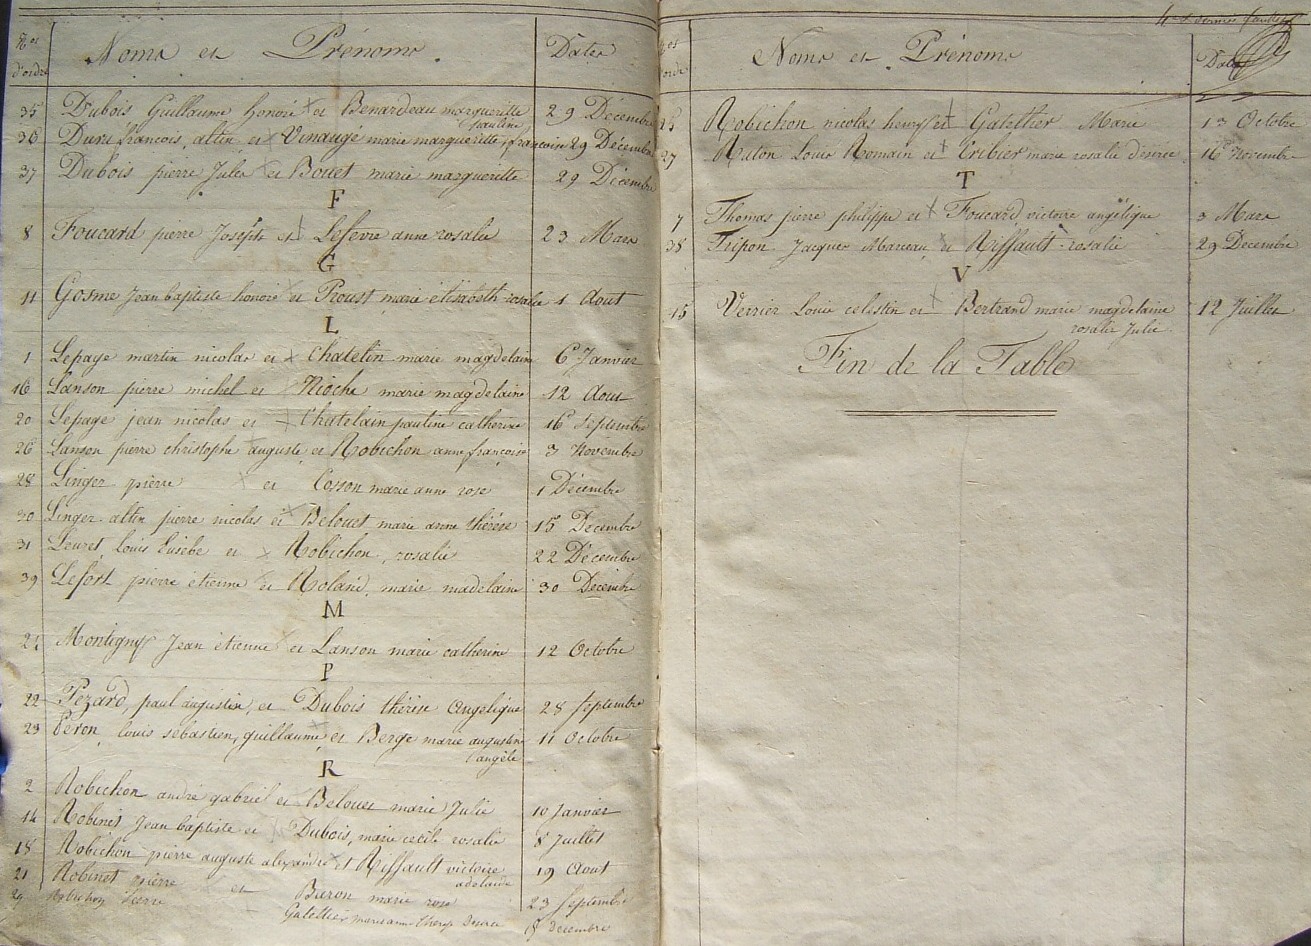 Nos d'ordre Noms et Prénoms. Dates
35 Dubois Guillaume honoré et Benardeau margueritte 29 Décembre
pauline
36 françois, altin et Vinauge marie margueritte, 29 Décembre
37 Dubois pierre Jules et Bouet marie margueritte 29 Décembre
F
8 Foucard pierre Joseph et Lefevre anne rosalie 23 Mars
G
11 Gosme Jean baptiste honoré et Proust marie élisabeth rosalie 1 Aout
L
1 Lepage martin nicolas et Chatelin marie magdelaine 6 Janvier
16 Lanson pierre michel et Rioche marie magdelaine 12 Aout
20 Lepage jean nicolas et Chatelain pauline catherine 16 Septembre
26 Lanson pierre christophe auguste et Robichon anne françoise 3 Novembre
28 Linger pierre et Cosson marie anne rose 1 Décembre
30 Linger altin pierre nicolas et Belouet marie anne thérése 15 Décembre
31 Leuret, Louis Eusèbe et Robichon, rosalie 22 Décembre
39 Lefort pierre étienne et Roland, marie madelaine 30 Décembre
M
24 Montigny Jean étienne et Lanson marie catherine 12 Octobre
P
22 Pezard, paul augustin, et Dubois thérèse Angelique 28 Septembre
23 Peron, louis sébastien, guillaume, et Berge marie augustine 11 Octobre
angèle
R
2 Robichon andré gabriel et Belouet marie Julie 10 Janvier
14 Robinet Jean baptiste et Dubois, marie cecile rosalie 8 Juillet
18 Robichon pierre auguste alexandre et Riffault victoire 19 Aout
adelaide
21 Robinet pierre et Baron marie rose 23 Septembre
29 Robichon Pierre Galettier marie anne therese Desirée 8 decembre
4e et dernier feuillet
Nos d'ordre Noms et Prénoms Dates
Robichon nicolas henry et Galettier Marie 13 Octobre
27 Ruton Louis Romain et Cribier marie rosalie désirée 16 Novembre
T
7 Thomas pierre philippe et Foucard victoire angélique 3 Mars
38 Tripon Jacques Marceau et Riffault rosalie 29 Décembre
V
15 Verrier Louis celestin et Bertrand marie magdelaine 12 Juillet
rosalie Julie
Fin de la Table